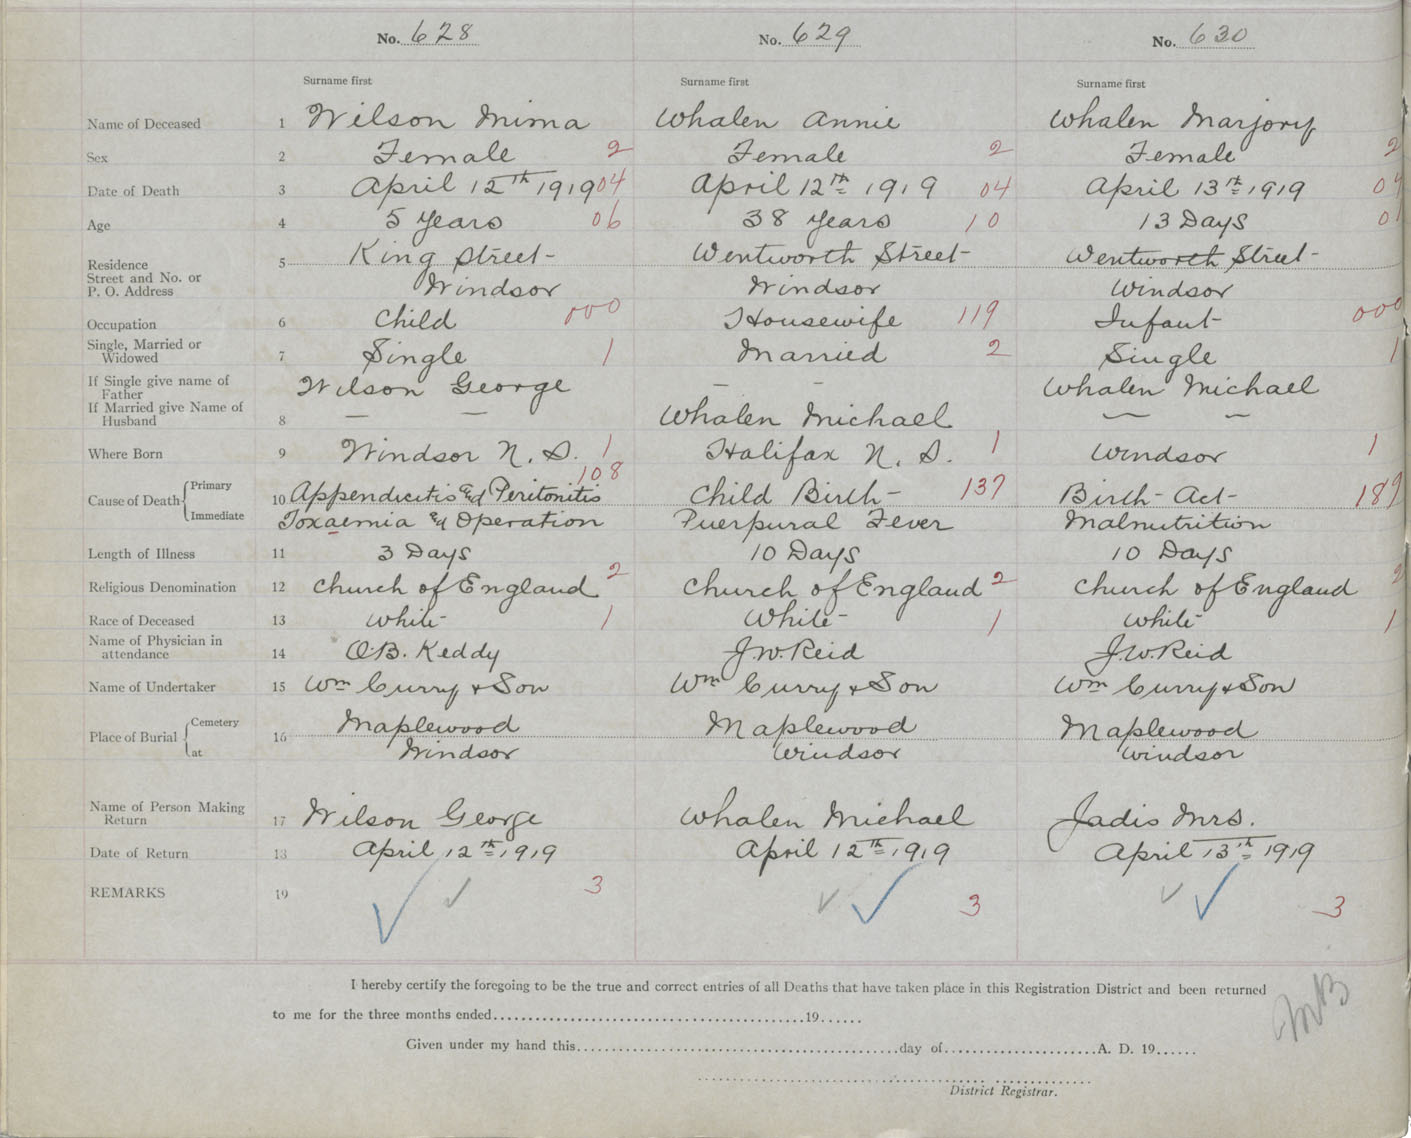 No. 628 No. 629 No. 630
Surname first Surname first Surname first
Name of Deceased 1 Wilson Mima Whalen Annie Whalen Marjory
Sex 2 Female 2 Female 2 Female 2
Date of Death 3 April 12th 1919 04 April 12th 1919 04 April 13th 1919 04
Age 4 5 Years 06 38 Years 10 13 Days 01
Residence 5 King Street Wentworth Street Wentworth Street
Street and No. or
P. O. Address Windsor Windsor Windsor
Occupation 6 Child 000 Housewife 119 Infant 000
Single, Married or
Widowed 7 Single 1 Married 2 Single 1
If Single give name of
Father Wilson George — — Whalen Michael
If Married give Name of
Husband 8 — — Whalen Michael — —
Where Born 9 Windsor N. S. 1 Halifax N. S. 1 Windsor 1
108
Cause of Death Primary 10 Appendicitis &d Peritonitis Child Birth 137 Birth Act 189
Immediate Toxaemia &d Operation Puerpural Fever Malnutrition
Length of Illness 11 3 Days 10 Days 10 Days
Religious Denomination 12 Church of England 2 Church of England 2 Church of England 2
Race of Deceased 13 White 1 White 1 White 1
Name of Physician in
attendance 14 O.B. Keddy J.W. Reid J.W. Reid
Name of Undertaker 15 Wm Curry & Son Wm Curry & Son Wm Curry & Son
Place of Burial Cemetery 16 Maplewood Maplewood Maplewood
at Windsor Windsor Windsor
Name of Person Making
Return 17 Wilson George Whalen Michael Jadis Mrs.
Date of Return 18 April 12th 1919 April 12th 1919 April 13th 1919
REMARKS 19 3 3 3
I hereby certify the foregoing to be the true and correct entries of all Deaths that have taken place in this Registration District and been returned
to me for the three months ended........................................19......
Given under my hand this..........................................day of....................A. D. 19......
District Registrar.